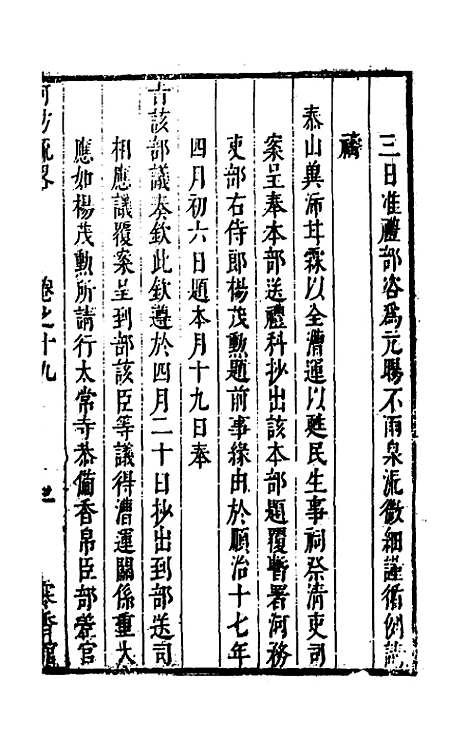 三日准禮部咨爲亢暘不雨泉流微細謹循例請
禱
泰山興沛甘霖以全漕運以甦民生事祠祭清吏司
案呈奉本部送禮科抄出該本部題覆暫署河務
吏部右侍郎楊茂勲題前事緣由於順治十七年
四月初六日題本月十九日奉
旨該部議奏欽此欽遵於四月二十日抄出到部送司
相應議覆案呈到部該臣等議得漕運關係重大
應如楊茂勲所請行太常寺恭備香帛臣部劄官
河防疏畧
卷之十九